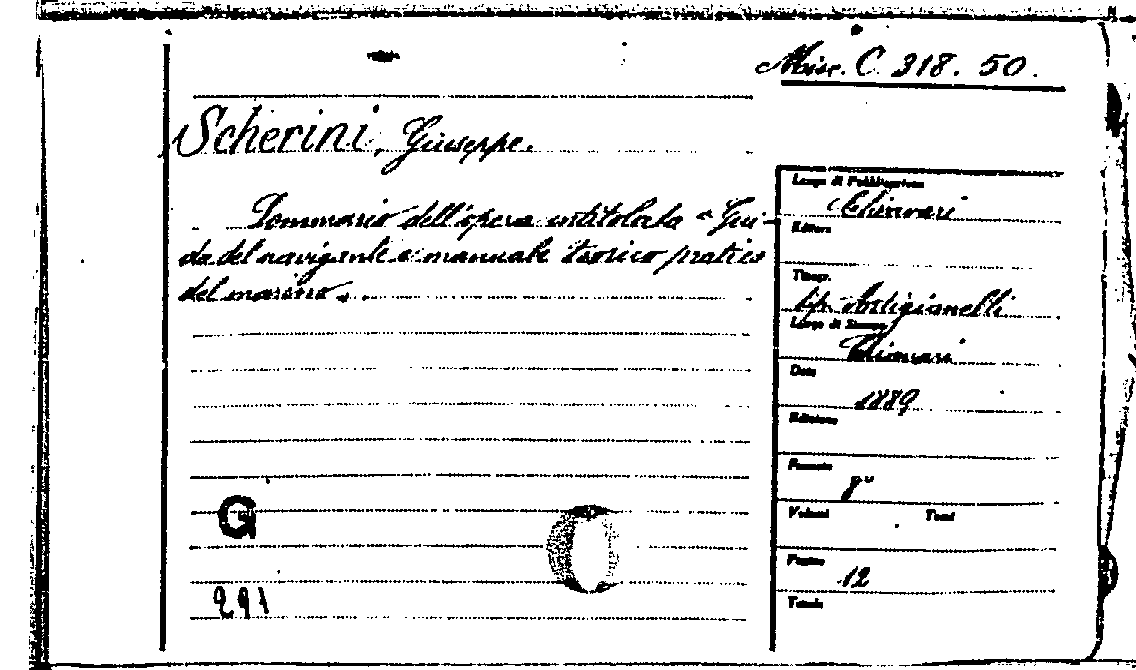 Misc. C. 318. 50.
Scherini, Giuseppe.
Sommario dell'opera intitolata "Gui-
da del navigante e manuale teorico pratico
del marino".
Luogo di Pubblicazione
Chiavari
Editore
Tipogr.
tip. Artigianelli
Luogo di Stampa
Chiavari
Data
1889
Edizione
Formato
8°
Volumi Tomi
Pagine
12
Tavole
G
291